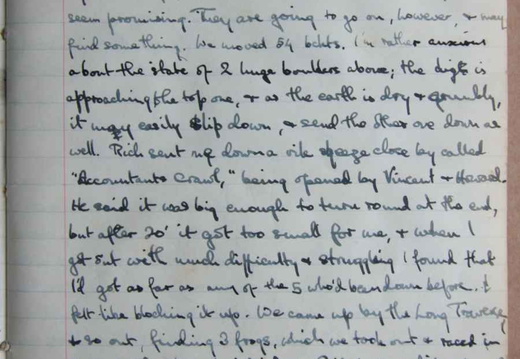 seem promising. They are going to go on, however, & may
find something. We moved 54 bckts. I'm rather anxious
about the state of 2 huge boulders above; the dig is
approaching the top one, & as the earth is dry & crumbly,
it may easily slip down, & send the other one down as
well. Rich sent me down a vile squeeze close by called
"Accountants Crawl," being opened by Vincent &
He said it was big enough to turn round at the end,
but after 20' it got too small for me, & when I
got out with much difficulty & struggling I found that
I'd got as far as any of the 5 who'd been down before. I
felt like blocking it up. We came up by the Long Traverse
& so out, finding 3 frogs, which we took out & raced in